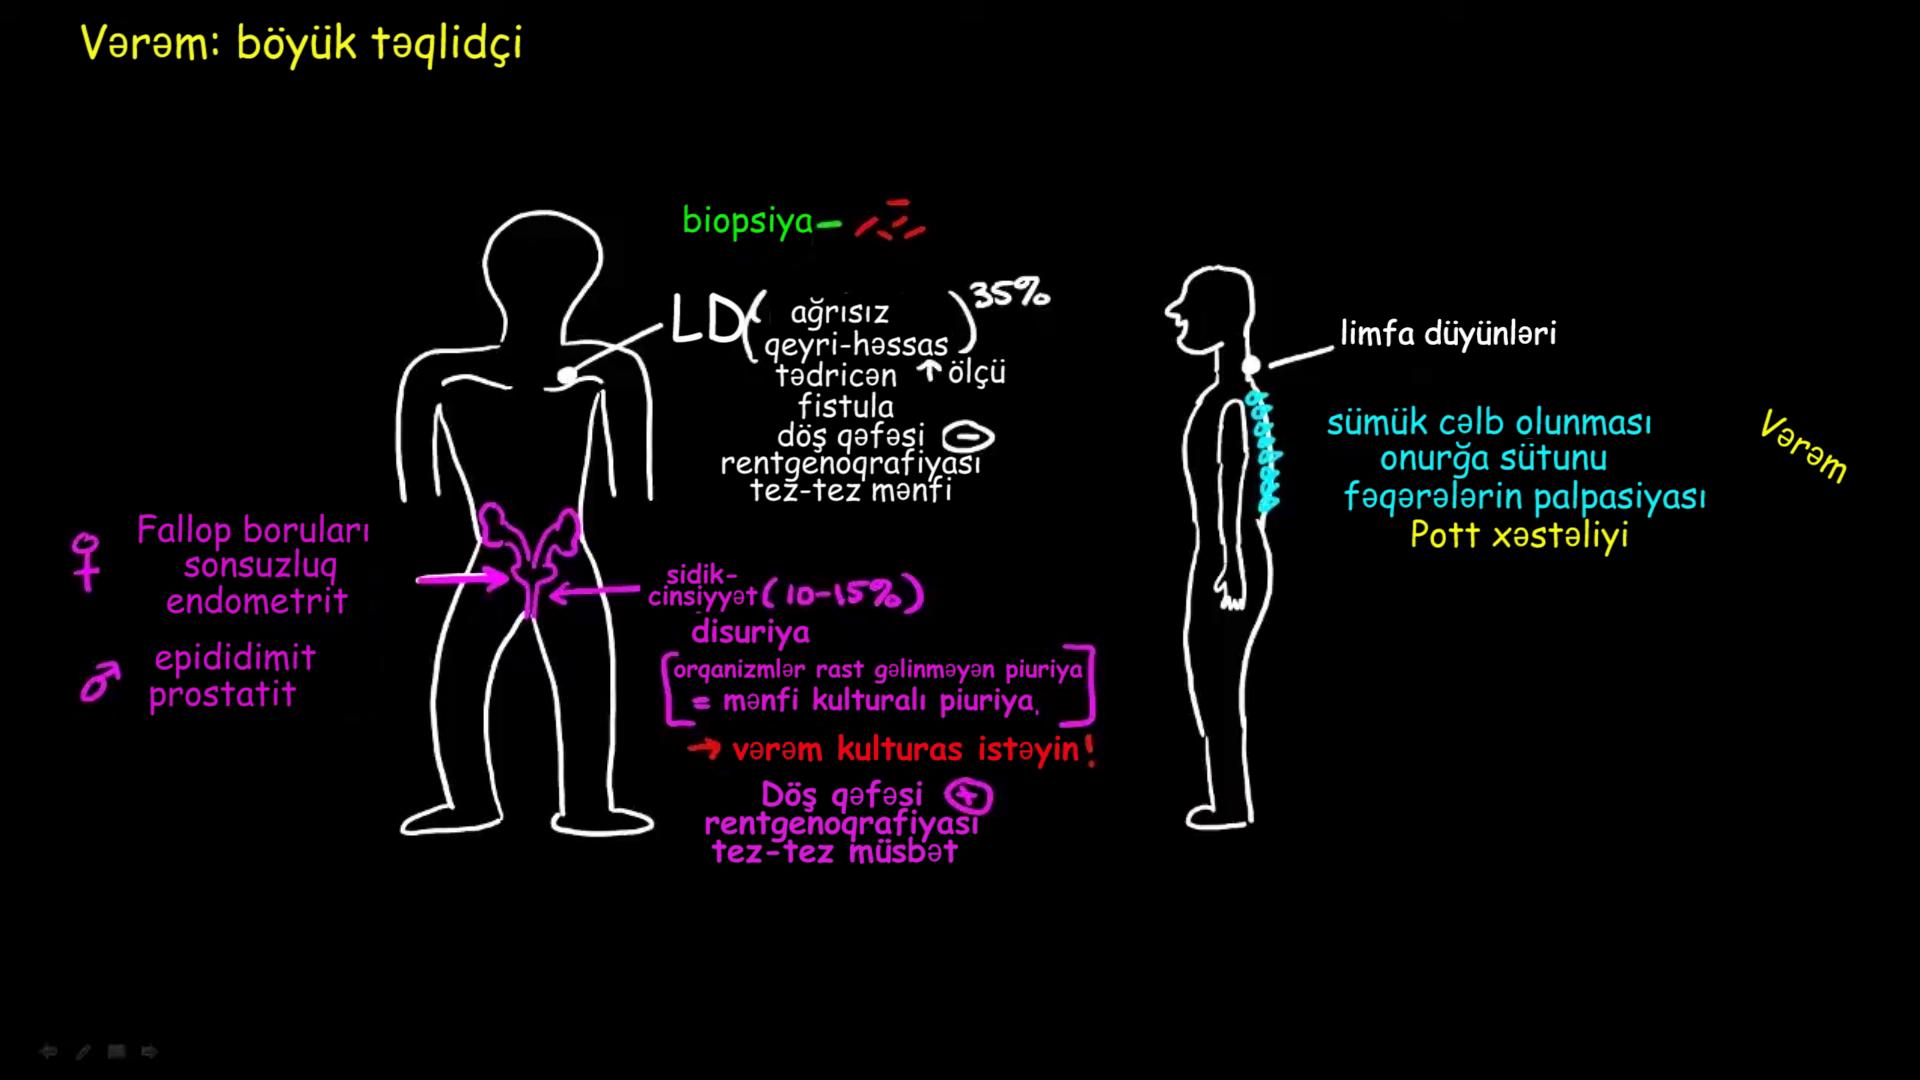 Vərəm: böyük təqlidçi
biopsiya-
LD( ağrısız
qeyri-həssas )35%
tədricən ↑ ölçü
fistula
döş qəfəsi ⊖
rentgenoqrafiyası
tez-tez mənfi
♀ Fallop boruları
sonsuzluq
endometrit
♂ epididimit
prostatit
sidik-
cinsiyyət (10-15%)
disuriya
[orqanizmlər rast gəlinməyən piuriya
= mənfi kulturalı piuriya.]
→ vərəm kulturas istəyin!
Döş qəfəsi ⊕
rentgenoqrafiyası
tez-tez müsbət
limfa düyünləri
sümük cəlb olunması
onurğa sütunu
fəqərələrin palpasiyası
Pott xəstəliyi
Vərəm